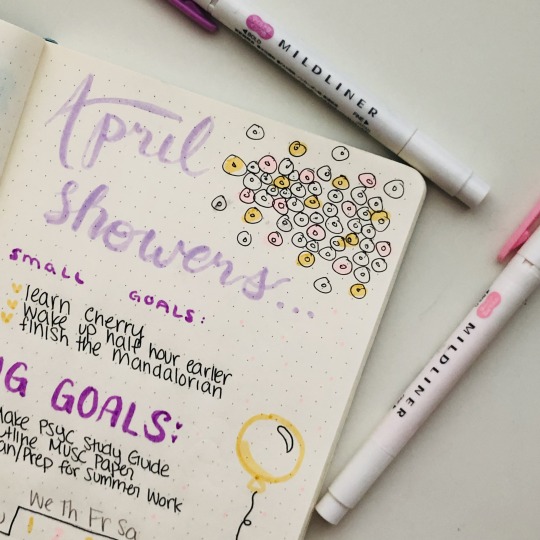 MILDLINER
April
showers...
SMALL GOALS:
learn cherry
wake up half hour earlier
finish the mandalorian
G GOALS:
ake Psyc Study Guide
utline Musc Paper
an/Prep for Summer Work
We Th Fr Sa
MILDLINER